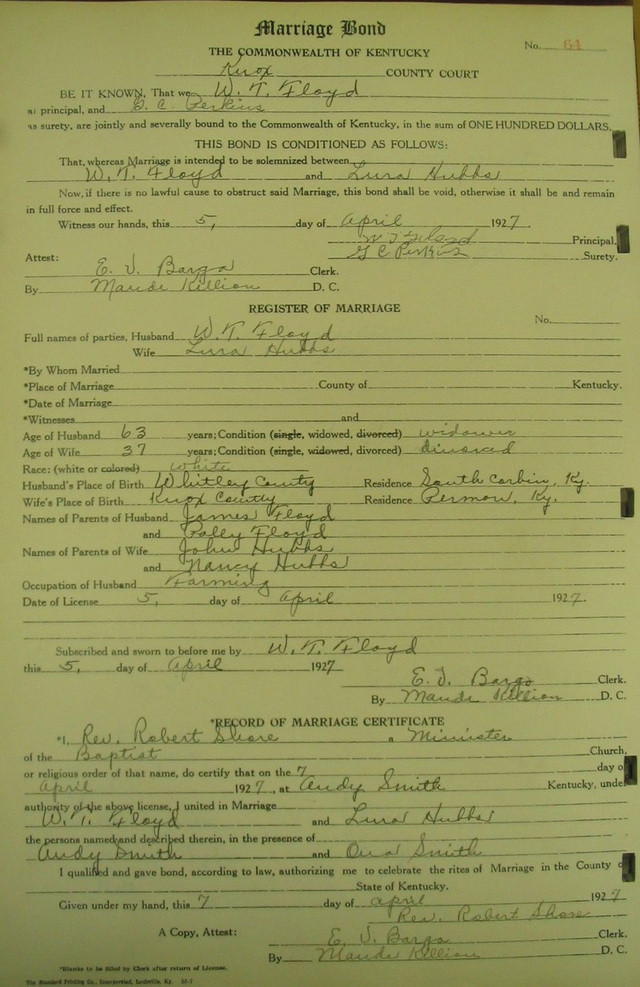 Marriage Bond
No. 64
THE COMMONWEALTH OF KENTUCKY
Knox COUNTY COURT
BE IT KNOWN, That we W. T. Floyd
as principal, and G. C. Perkins
as surety, are jointly and severally bound to the Commonwealth of Kentucky, in the sum of ONE HUNDRED DOLLARS.
THIS BOND IS CONDITIONED AS FOLLOWS:
That, whereas Marriage is intended to be solemnized between
W. T. Floyd and Lura Hubbs
Now, if there is no lawful cause to obstruct said Marriage, this bond shall be void, otherwise it shall be and remain
in full force and effect.
Witness our hands, this 5, day of April 1927
W T Floyd Principal,
G C Perkins Surety.
Attest:
E. T. Bargo Clerk.
By Maude Killion D. C.
REGISTER OF MARRIAGE
No.
Full names of parties, Husband W. T. Floyd
Wife Lura Hubbs
*By Whom Married
*Place of Marriage County of Kentucky.
*Date of Marriage
*Witnesses and
Age of Husband 63 years; Condition (single, widowed, divorced) widower
Age of Wife 37 years; Condition (single, widowed, divorced) divorced
Race: (white or colored) white
Husband's Place of Birth Whitley County Residence South Corbin, Ky.
Wife's Place of Birth Knox County Residence Permon, Ky.
Names of Parents of Husband James Floyd
and Polly Floyd
Names of Parents of Wife John Hubbs
and Nancy Hubbs
Occupation of Husband Farming
Date of License 5, day of April 1927.
Subscribed and sworn to before me by W. T. Floyd
this 5, day of April 1927
E. T. Bargo Clerk.
By Maude Killion D. C.
*RECORD OF MARRIAGE CERTIFICATE
*I, Rev. Robert Shore a Minister
of the Baptist Church,
or religious order of that name, do certify that on the 7 day of
April 1927, at Andy Smith Kentucky, under
authority of the above license, I united in Marriage
W. T. Floyd and Lura Hubbs
the persons named and described therein, in the presence of
Andy Smith and Ora Smith
I qualified and gave bond, according to law, authorizing me to celebrate the rites of Marriage in the County of
State of Kentucky.
Given under my hand, this 7 day of April 1927
Rev. Robert Shore
A Copy, Attest: E. T. Bargo Clerk.
By Maude Killion D. C.
*Blanks to be filled by Clerk after return of License.
The Standard Printing Co., Incorporated, Louisville, Ky. M-7